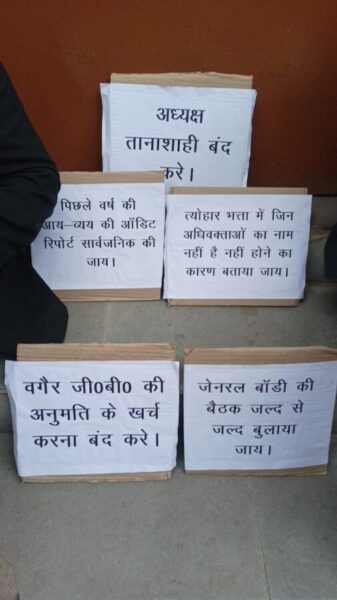 अध्यक्ष
तानाशाही बंद
करे।
पिछले वर्ष की
आय–व्यय की ऑडिट
रिपोर्ट सार्वजनिक की
जाय।
त्योहार भत्ता में जिन
अधिवक्ताओं का नाम
नहीं है नहीं होने का
कारण बताया जाय।
वगैर जी0बी0 की
अनुमति के खर्च
करना बंद करे।
जेनरल बॉडी की
बैठक जल्द से
जल्द बुलाया
जाय।